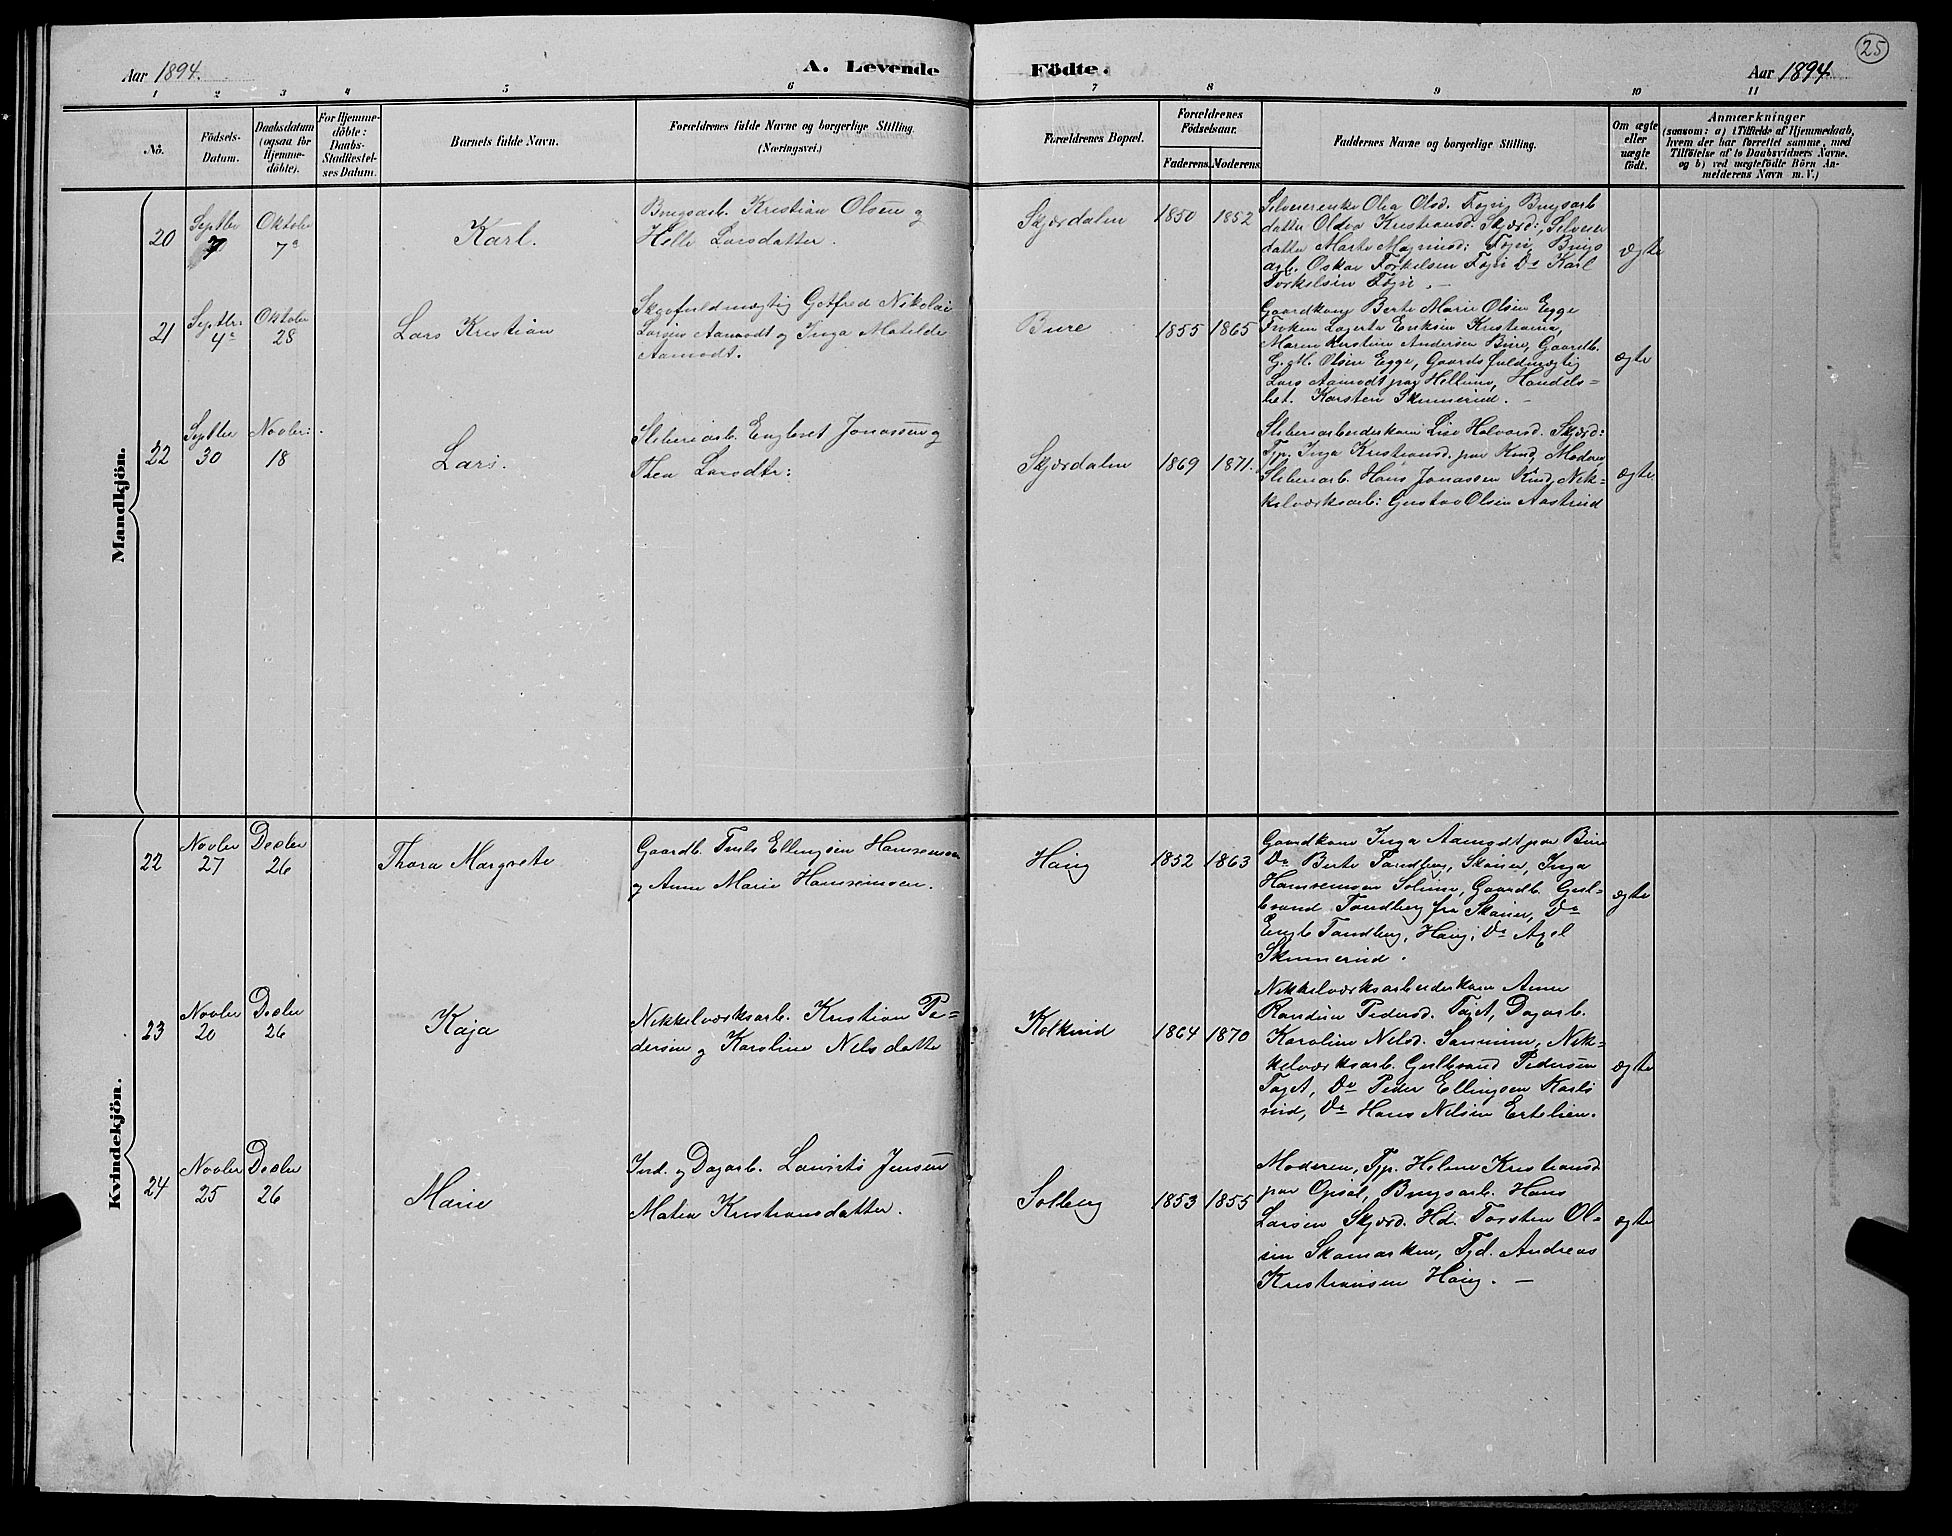 25
Aar 1894.
A. Levende
Födte.
Aar 1894
1 2 3 4 5 6 7 8 9 10 11
Nö.
Födsels-
Datum.
Daabsdatum
(ogsaa for
Hjemme-
döbte).
For Hjemme-
döbte:
Daabs-
Stadfæstel-
ses Datum.
Barnets fulde Navn.
Forældrenes fulde Navne og borgerlige Stilling.
(Næringsvei.)
Forældrenes Bopæl.
Forældrenes
Födselsaar.
Faderens.
Moderens.
Faddernes Navne og borgerlige Stilling.
Om ægte
eller
uægte
födt.
Anmærkninger
(saasom: a) i Tilfælde af Hjemmedaab,
hvem der har forrettet samme, med
Tilföielse af to Daabsvidners Navne,
og b) ved uægtefödte Börn An-
melderens Navn m. V.)
Mandkjön.
20
Septbr
7
Oktober
7de
Karl.
Brugsarb. Kristian Olsen og
Helle Larsdatter.
Skjærdalen
1850
1852
Olea Olsd. Brugsarb
datter Kristiansd. Skjærd:,
datter Marte Brugs
arb. Oskar Torkelsen Do Karl
Torkelsen
ægte
21
Septbr:
4de
Oktober
28
Lars Kristian
Gotfred Nikolai
Larsen Aamodt og Inga Matilde
Aamodt.
Bure
1855
1865
Gaardkone Berte Marie Olsen Egge
Frøken Lagerta Eriksen Kristiania,
Maren Kirstine Andersen Bure, Gaardb.
G. M. Olsen Egge, Gaardsfuldmægtig
Lars Aamodt paa Hellum, Handels=
bet. Karsten Skinnerud. —
ægte
22
Septbr
30
Novbr:
18
Lars.
Sliberiarb. Jonassen og
Thea Larsdtr:
Skjærdalen
1869
1871.
Sliberiarbeiderkone Lise Halvorsd. Skjærd:
Tjp. Inga Kristiansd. paa Moderen,
Sliberiarb. Hans Jonassen Nik=
kelværksarb: Gustav Olsen Aastrud
ægte
Kvindekjön.
22
Novbr
27
Decbr
26
Thora Margrete
Gaardb. Truls Ellingsen
og Anne Marie
Haug
1852
1863
Gaardkone Inga Aamodt paa Bure
Do Berte Tandberg, Inga
Gaardb. Gul=
brand Tandberg fra Do
Tandberg, Haug, Do Axel
Skinnerud.
ægte
23
Novbr
20
Decbr
26
Kaja
Nikkelværksarb. Kristian Pe=
dersen og Karoline Nilsdatter
1864
1870
Nikkelværksarbeiderkone Anne
Randine Pedersd. Dagarb.
Karoline Nilsd. Nik=
kelværksarb. Gulbrand Pedersen
Do Peder Ellingsen Karls
rud, Do Hans Nilsen Ertelien.
ægte
24
Novbr
25
Decbr
26
Marie
Ind. og Dagarb. Laurits Jensen
Matea Kristiansdatter.
Solberg
1853
1855
Moderen, Tjp. Helene Kristiansd
paa Opsal, Brugsarb. Hans
Larsen Skjærd. Hd. Torsten Ol=
sen Tjd. Andreas
Kristiansen Haug. —
ægte